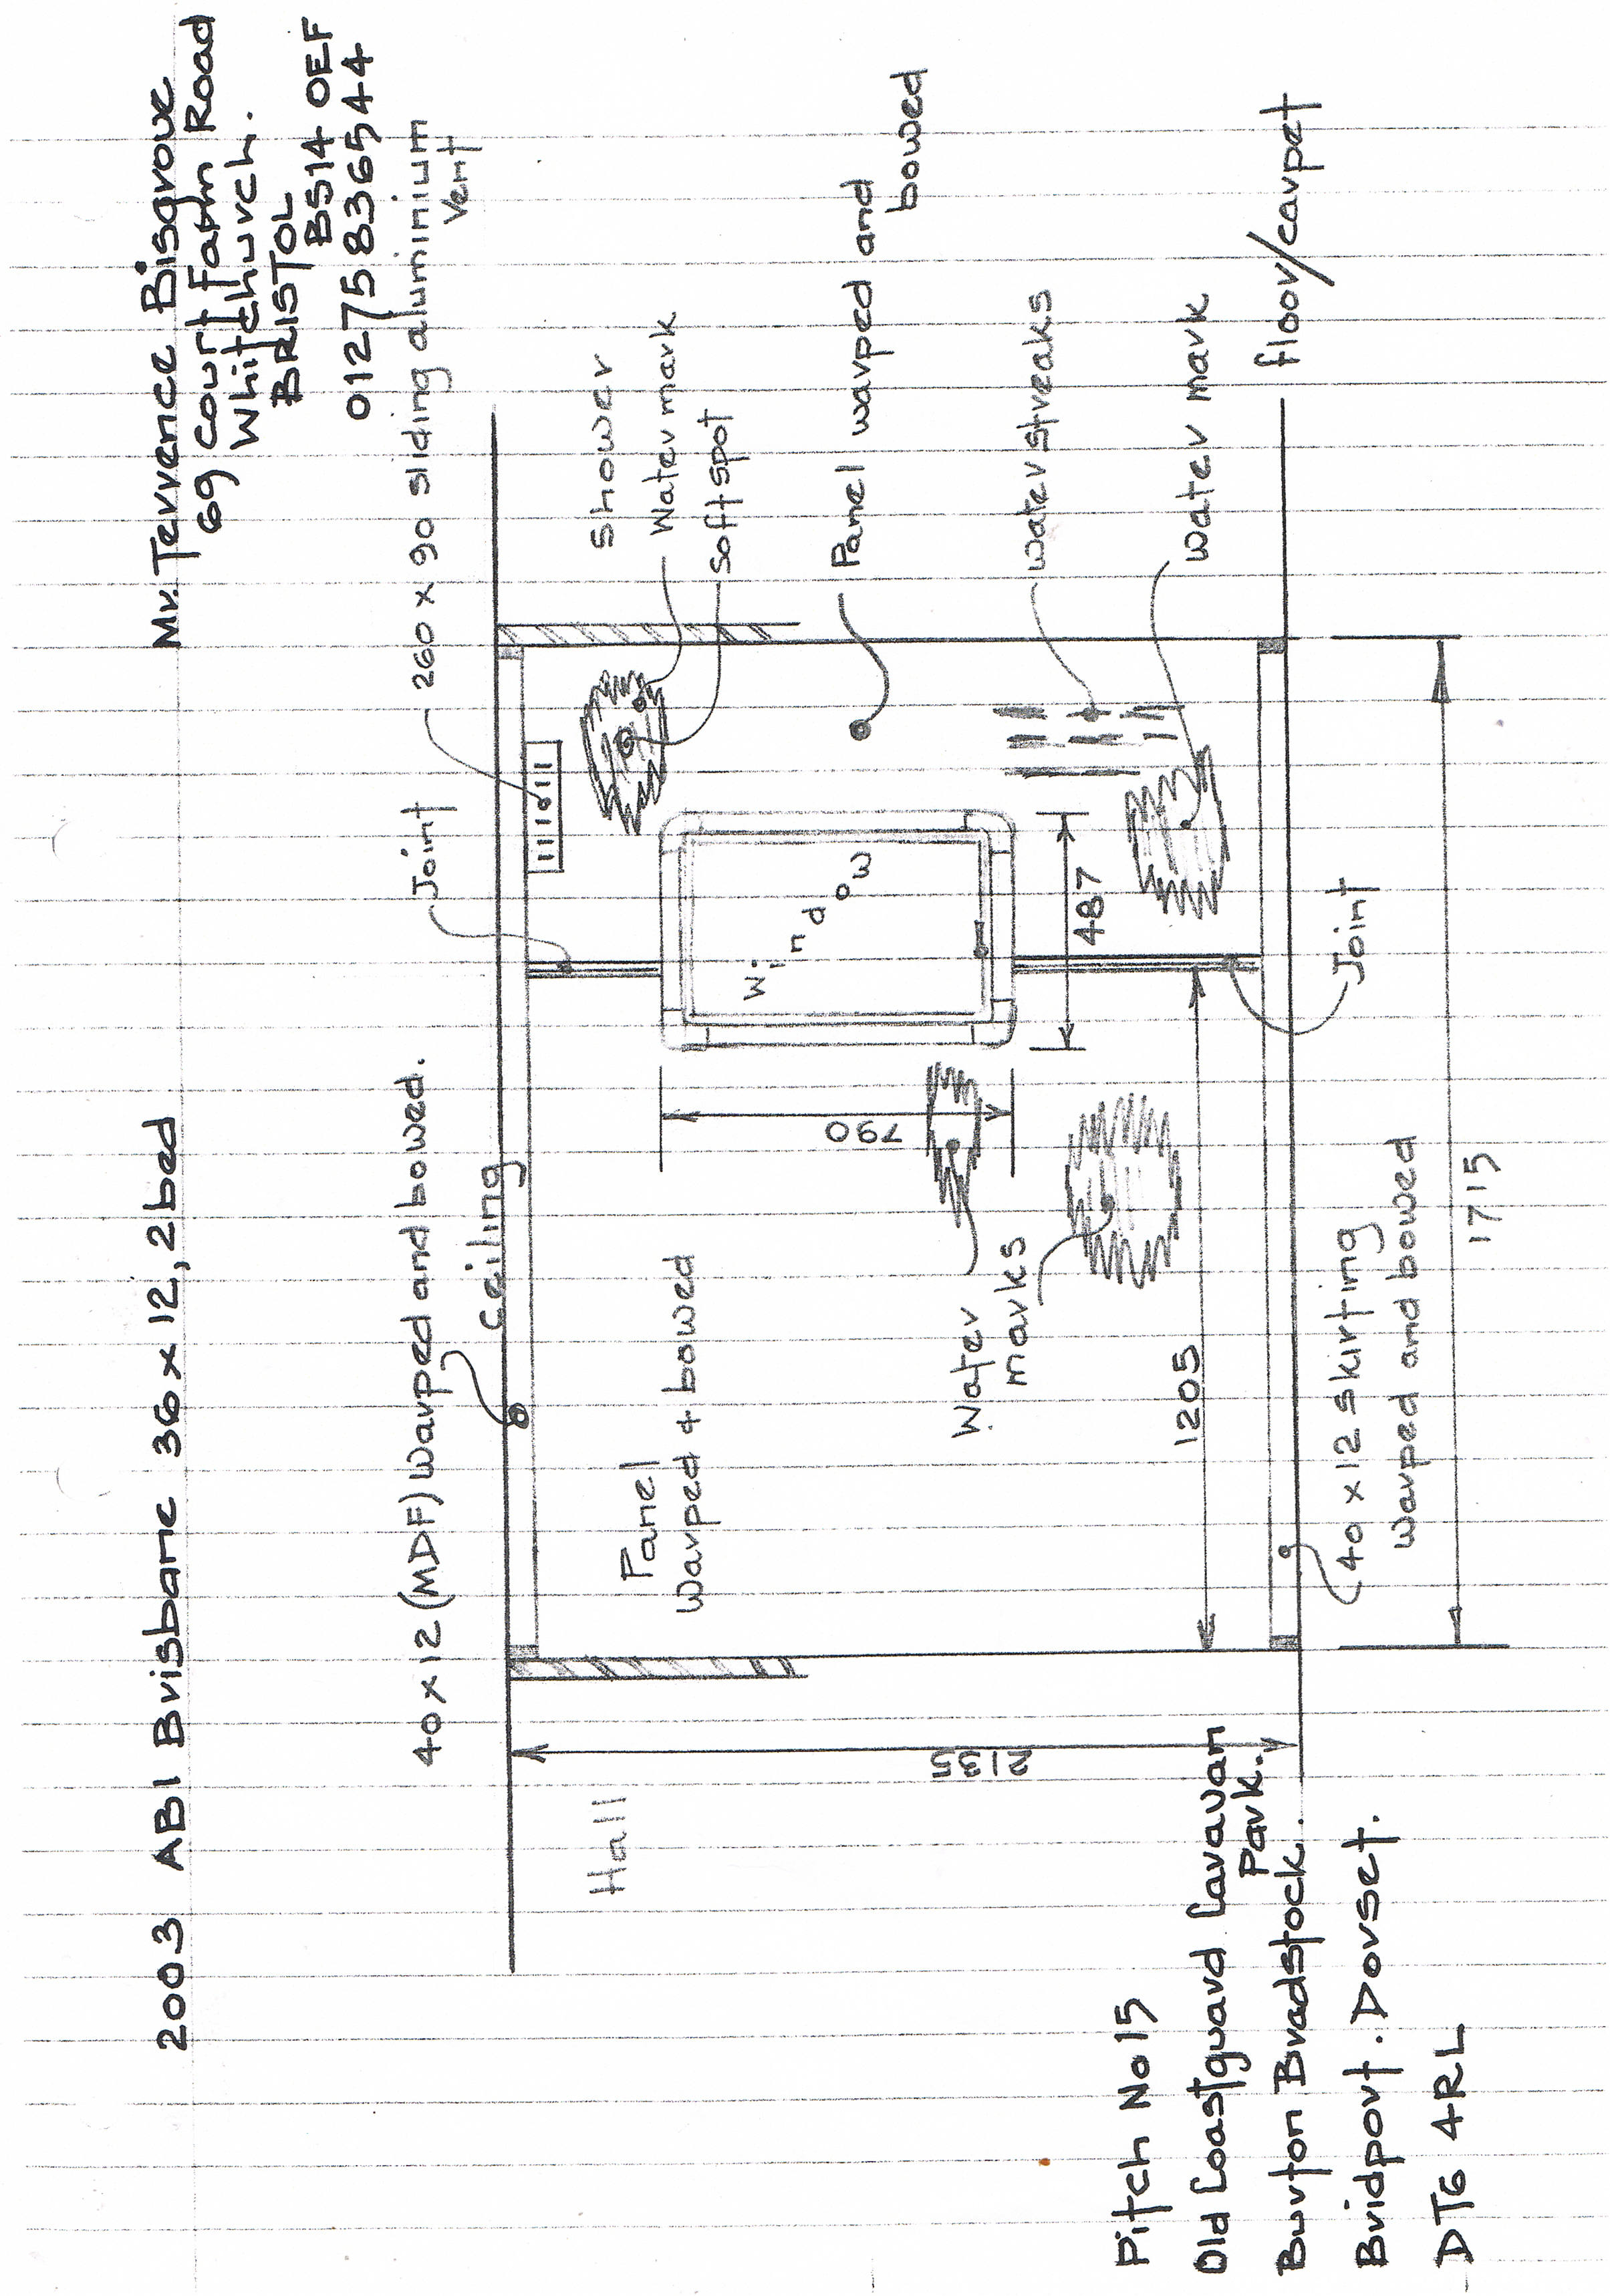 2003 ABI Brisbane 36 x 12, 2 bed
Mr. Terrence Bisgrove
69 Court Farm Road
Whitchurch.
BRISTOL
BS14 0EF
01275 836544
40 x 12 (MDF) Warped and bowed.
Joint
260 x 90 sliding aluminium
vent
ceiling
Hall
Panel
Warped + bowed
Shower
Water mark
soft spot
Window
Panel warped and
bowed
2135
790
Water
marks
487
water streaks
water mark
1205
Joint
floor/carpet
40 x 12 skirting
warped and bowed
1715
Pitch No 15
Old Coastguard Caravan
Park.
Burton Bradstock.
Bridport. Dorset.
DT6 4RL